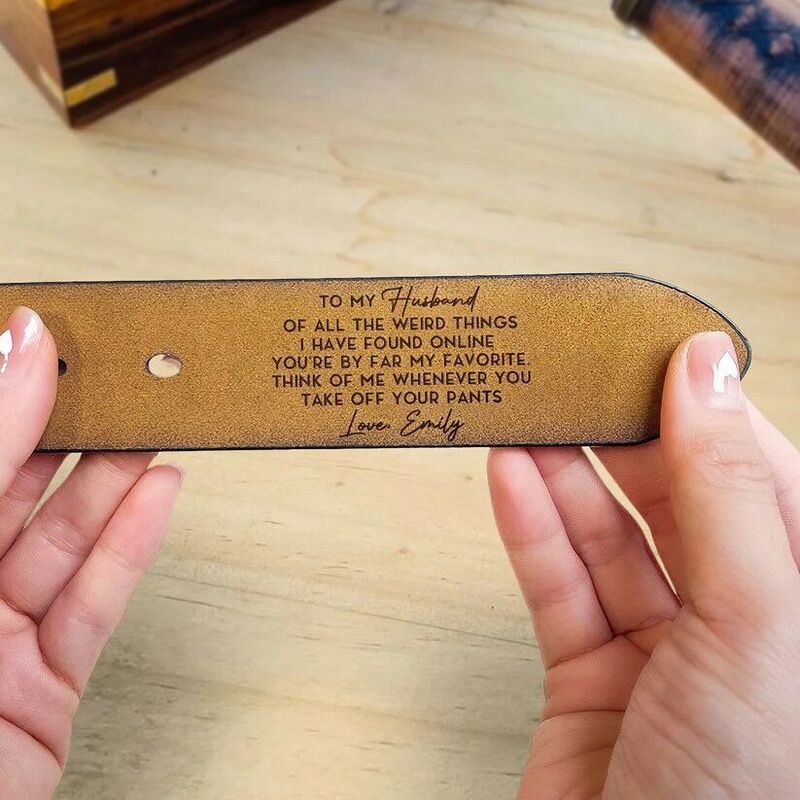 TO MY Husband
OF ALL THE WEIRD THINGS
I HAVE FOUND ONLINE
YOU'RE BY FAR MY FAVORITE.
THINK OF ME WHENEVER YOU
TAKE OFF YOUR PANTS
Love, Emily